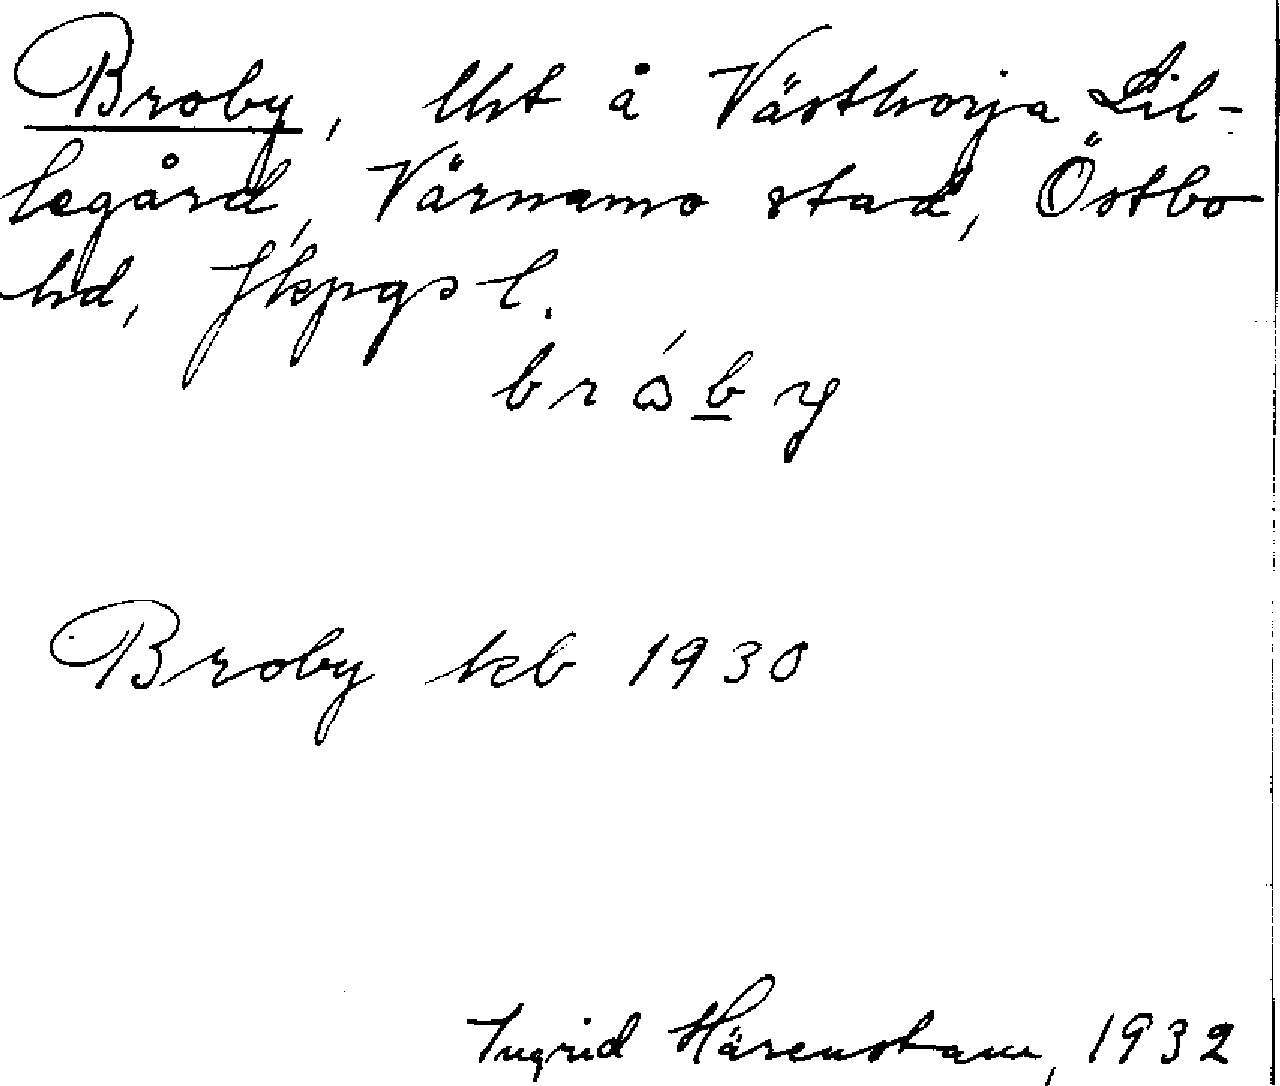 Broby, lht å Västhorja Lil-
legård, Värnamo stad, Östbo
hd, Jkpgs l.
bróby
Broby kb 1930
Ingrid Härenstam, 1932